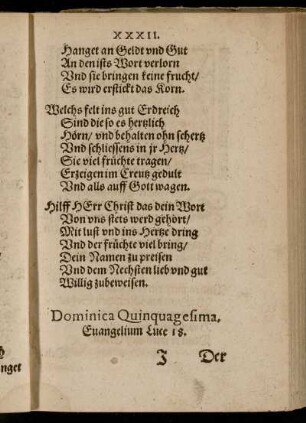 XXXII.
Hanget an Geldt vnd Gut
An den ists Wort verlorn
Vnd sie bringen keine frucht/
Es wird erstickt das Korn.
Welchs felt ins gut Erdreich
Sind die so es hertzlich
Hörn/ vnd behalten ohn schertz
Vnd schliessens in jr Hertz/
Sie viel früchte tragen/
Erzeigen im Creutz gedult
Vnd alls auff Gott wagen.
Hilff HErr Christ das dein Wort
Von vns stets werd gehört/
Mit lust vnd ins Hertze dring
Vnd der früchte viel bring/
Dein Namen zu preisen
Vnd dem Nechsten lieb vnd gut
Willig zubeweisen.
Dominica Quinquagesima.
Euangelium Luce 18.
J Der
nget